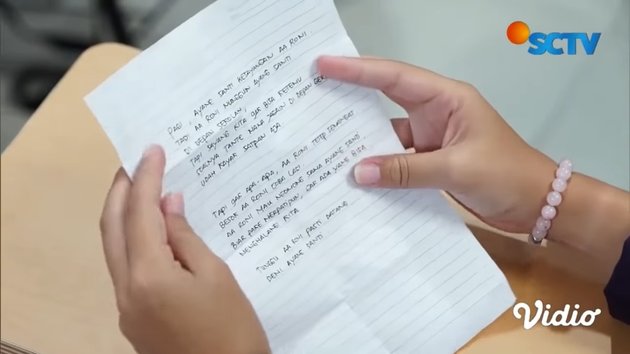 SCTV
PAGI AYANG SANTI KESAYANGAN AA RONI
TADI AA RONI NUNGGUIN AYANG SANTI
DI DEPAN SEKOLAH,
TAPI SAYANG KITA GAK BISA KETEMU
TANTE MANA JAGAIN DI DEPAN
UDAH KAYAK SATPAM AJA
TAPI GAK APA-APA, AA RONI TETEP SEMANGAT
BESOK AA RONI COBA LAGI
AA RONI MAU NEMENING SAMA AYANG SANTI
BIAR PAKE GAK ADA YANG BISA
MENGHALANGI KITA
TUNGGU AA RONI PASTI DATANG
DEMI AYANG SANTI
Vidio